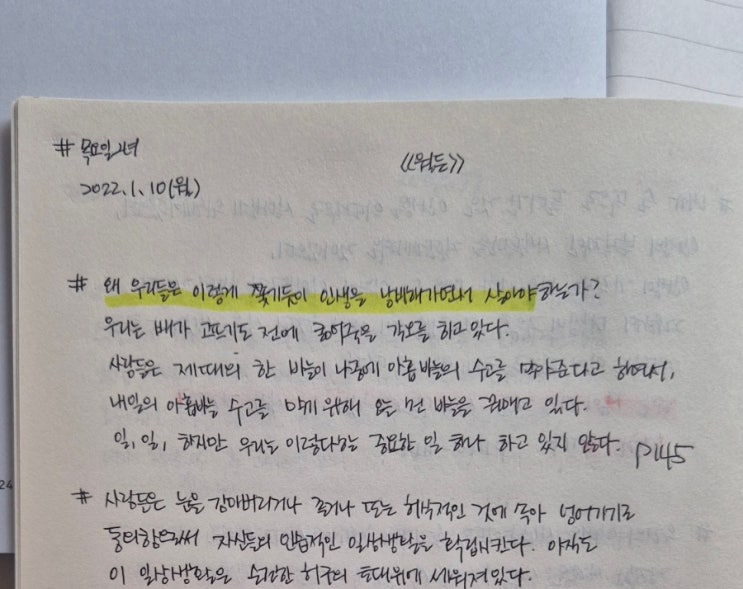 # 목요일2녀
《월든》
2022.1.10(월)
# 왜 우리들은 이렇게 쫓기듯이 인생을 낭비해가면서 살아야 하는가?
우리는 배가 고프기도 전에 굶어죽을 각오를 하고 있다.
사람들은 제때의 한 바늘이 나중에 아홉 바늘의 수고를 막아준다고 하면서,
내일의 아홉바늘 수고를 막기 위해 오늘 천 바늘을 꿰매고 있다.
일, 일, 하지만 우리는 이렇다할 중요한 일 하나 하고 있지 않다. P145
# 사람들은 눈을 감아버리거나 졸거나 또는 허식적인 것에 속아 넘어가기로
동의함으로써 자신들의 인습적인 일상생활을 확립시킨다. 아직도
이 일상생활은 순전한 허구의 토대위에 세워져있다.
24